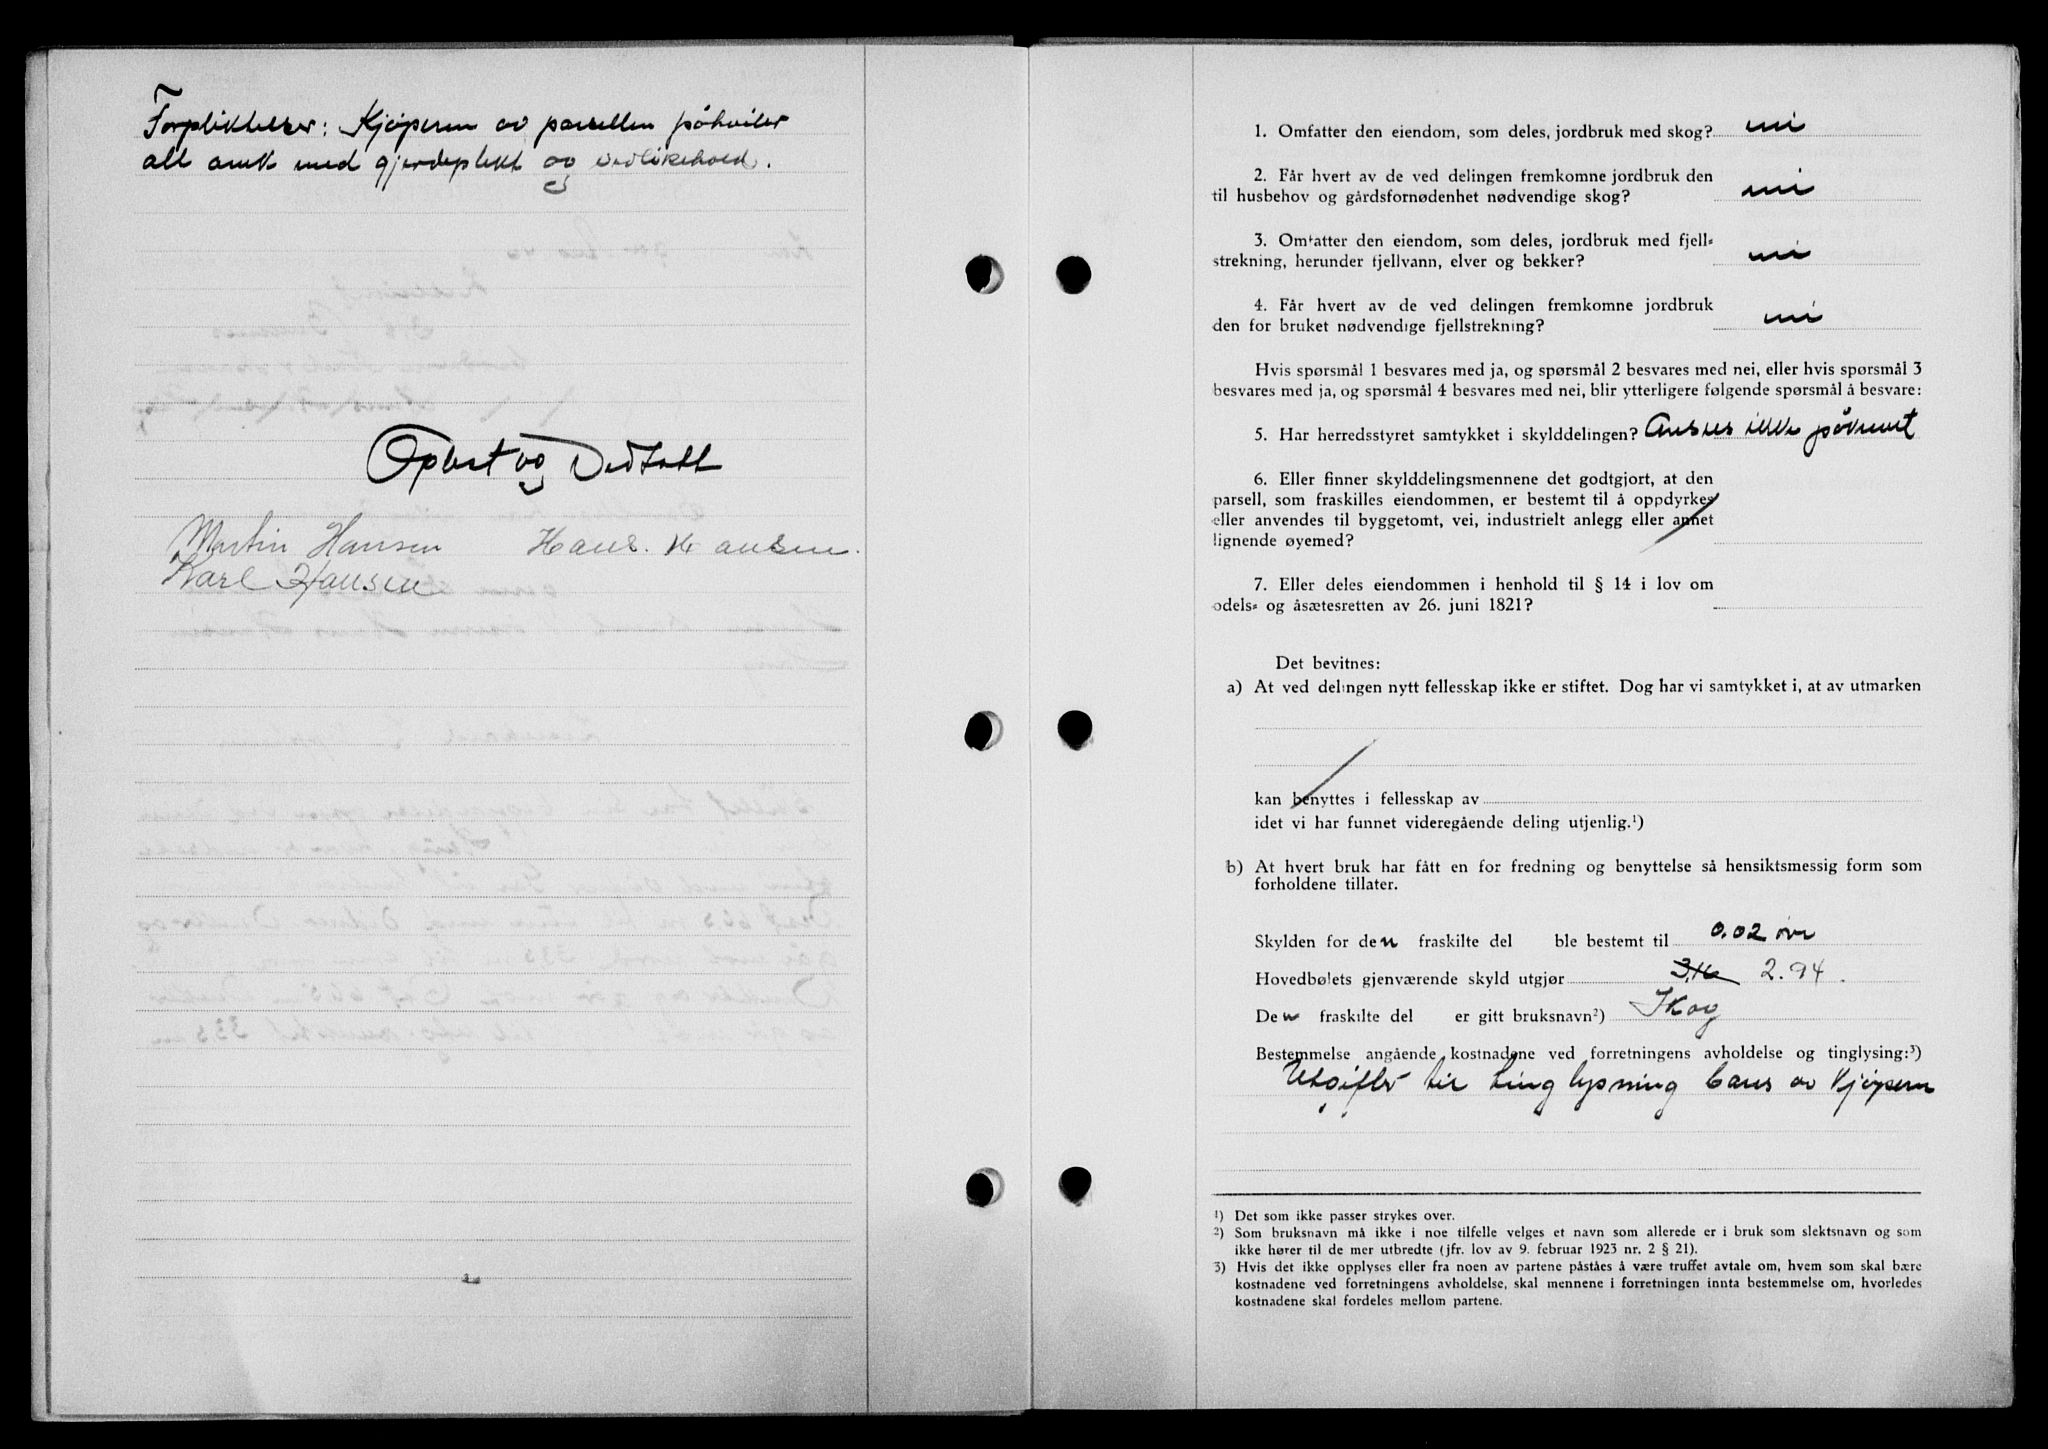 Forpliktelser: Kjöperen av parsellen påhviler
alt ansv med gjerdeplikt og vedlikehold.
Oplest og Vedtatt
Martin Hansen Hans. Hansen.
Karl Hansen
1. Omfatter den eiendom, som deles, jordbruk med skog? nei
2. Får hvert av de ved delingen fremkomne jordbruk den
til husbehov og gårdsfornødenhet nødvendige skog? nei
3. Omfatter den eiendom, som deles, jordbruk med fjell=
strekning, herunder fjellvann, elver og bekker? nei
4. Får hvert av de ved delingen fremkomne jordbruk
den for bruket nødvendige fjellstrekning? nei
Hvis spørsmål 1 besvares med ja, og spørsmål 2 besvares med nei, eller hvis spørsmål 3
besvares med ja, og spørsmål 4 besvares med nei, blir ytterligere følgende spørsmål å besvare:
5. Har herredsstyret samtykket i skylddelingen? Anses ikke påkrevet
6. Eller finner skylddelingsmennene det godtgjort, at den
parsell, som fraskilles eiendommen, er bestemt til å oppdyrkes
eller anvendes til byggetomt, vei, industrielt anlegg eller annet
lignende øyemed?
7. Eller deles eiendommen i henhold til § 14 i lov om
odels= og åsætesretten av 26. juni 1821?
Det bevitnes:
a) At ved delingen nytt fellesskap ikke er stiftet. Dog har vi samtykket i, at av utmarken
kan benyttes i fellesskap av
idet vi har funnet videregående deling utjenlig.¹)
b) At hvert bruk har fått en for fredning og benyttelse så hensiktsmessig form som
forholdene tillater.
Skylden for den fraskilte del ble bestemt til 0.02 øre
Hovedbølets gjenværende skyld utgjør 3.16 2.94.
Den fraskilte del er gitt bruksnavn²) Skog
Bestemmelse angående kostnadene ved forretningens avholdelse og tinglysing:³)
Utgifter til tinglysning bæres av Kjöperen
¹) Det som ikke passer strykes over.
²) Som bruksnavn må ikke i noe tilfelle velges et navn som allerede er i bruk som slektsnavn og som
ikke hører til de mer utbredte (jfr. lov av 9. februar 1923 nr. 2 § 21).
3) Hvis det ikke opplyses eller fra noen av partene påståes å være truffet avtale om, hvem som skal bære
kostnadene ved forretningens avholdelse, skal mennene i forretningen innta bestemmelse om, hvorledes
kostnadene skal fordeles mellom partene.